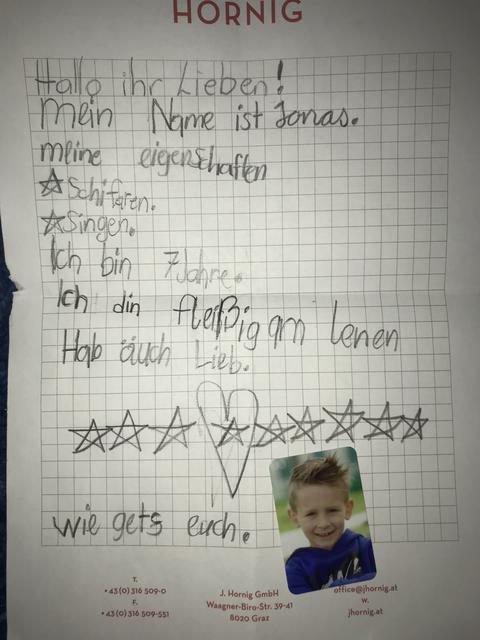 HORNIG
Hallo ihr Lieben!
Mein Name ist Jonas.
meine eigenschaften
Schifaren.
Singen.
Ich bin 7 Jahre.
Ich din fleißig am lenen
Hab äuch Lieb.
wie gets euch.
T.
+43(0) 316 509-0
F.
+43(0) 316 509-551
J. Hornig GmbH
Waagner-Biro-Str. 39-41
8020 Graz
office@jhornig.at
w.
jhornig.at